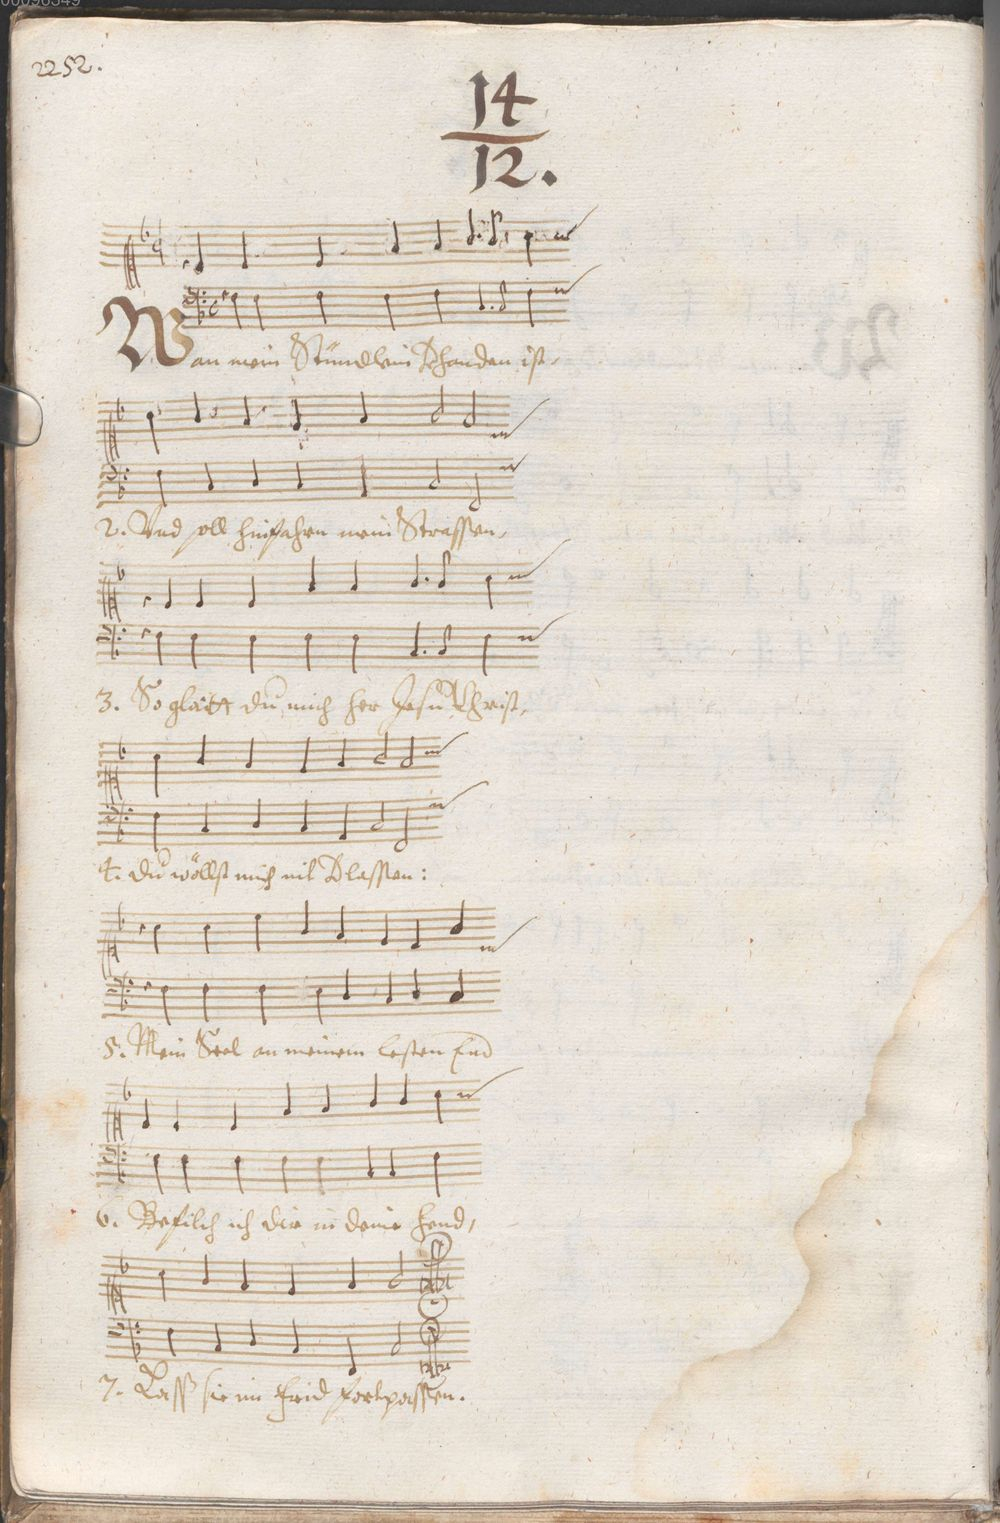 00098349
2252.
14
12.
Wan mein Stündlein Vhanden ist,
2. Vnd soll hinfahrn mein Strassen,
3. So glaitt du mich her Jesu Christ,
4. du wöllst mich nit Vlassen:
5. Mein Seel an meinem lesten End
6. Befilch ich dir in deine hend,
7. Lass sie im frid fortpassen.